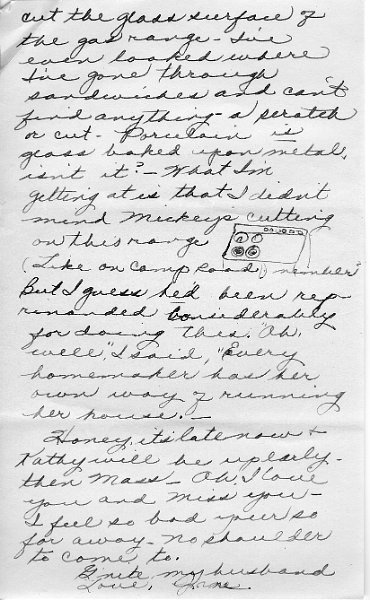 cut the glass surface of
the gas range - I've
even looked where
I've gone through
sandwiches and can't
find anything - a scratch
or cut - Porcelain is
glass baked upon metal,
isnt it? - What I'm
getting at is that I didn't
mind Mickeys cutting
on this range
(Like on Camp Road,) member?
But I guess he'd been rep-
rimanded considerably
for doing this. "Oh,
well", I said, "Every
homemaker has her
own way of running
her house." -
Honey, it's late now &
Kathy will be up early -
then Mass - Oh, I love
you and miss you -
I feel so bad your so
far away - No shoulder
to come to.
G'nite my husband
Love, Jane